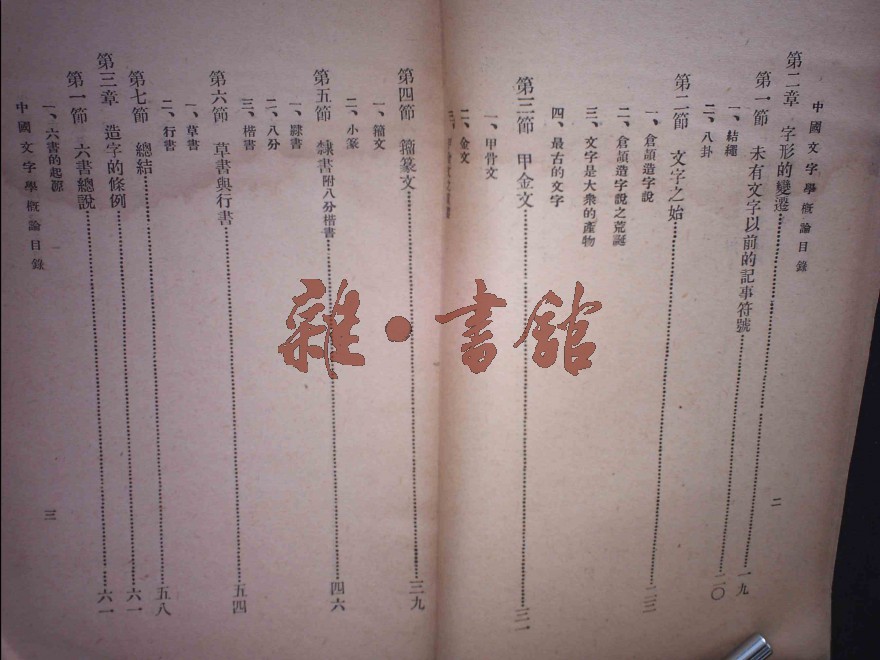 中國文字學概論目錄 二
第二章 字形的變遷……一九
第一節 未有文字以前的記事符號……二〇
一、結繩
二、八卦
第二節 文字之始……二三
一、倉頡造字說
二、倉頡造字說之荒誕
三、文字是大衆的產物
四、最古的文字
第三節 甲金文……三一
一、甲骨文
二、金文
第四節 籀篆文……三九
一、籀文
二、小篆
第五節 隸書附八分楷書……四六
一、隸書
二、八分
三、楷書
第六節 草書與行書……五四
一、草書
二、行書
第七節 總結……五八
第三章 造字的條例……六一
第一節 六書總說……六一
一、六書的起源
中國文字學概論目錄 三
雜·書館